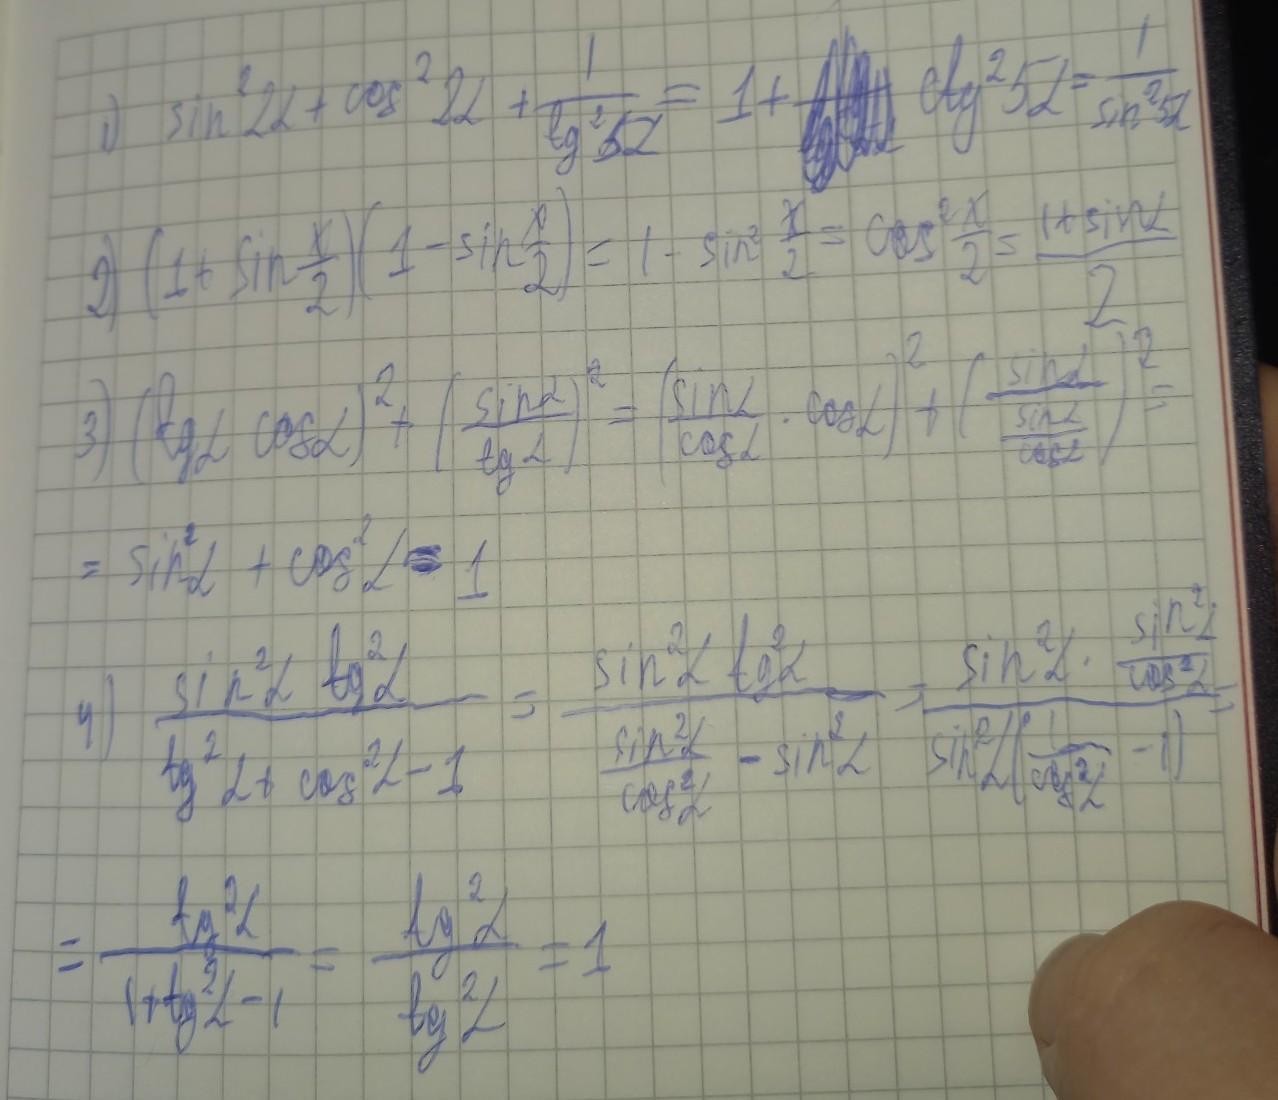 1) sin²2α + cos²2α + 1/tg²5α = 1 + ctg²5α = 1/sin²5α
2) (1 + sin x/2)(1 - sin x/2) = 1 - sin² x/2 = cos² x/2 = (1 + sinα)/2
3) (tgα cosα)² + (sinα/tgα)² = (sinα/cosα · cosα)² + (sinα/(sinα/cosα))² =
= sin²α + cos²α = 1
4) (sin²α tg²α)/(tg²α + cos²α - 1) = (sin²α tg²α)/(sin²α/cos²α - sin²α) = (sin²α · sin²α/cos²α)/(sin²α(1/cos²α - 1)) =
= tg²α/(1 + tg²α - 1) = tg²α/tg²α = 1